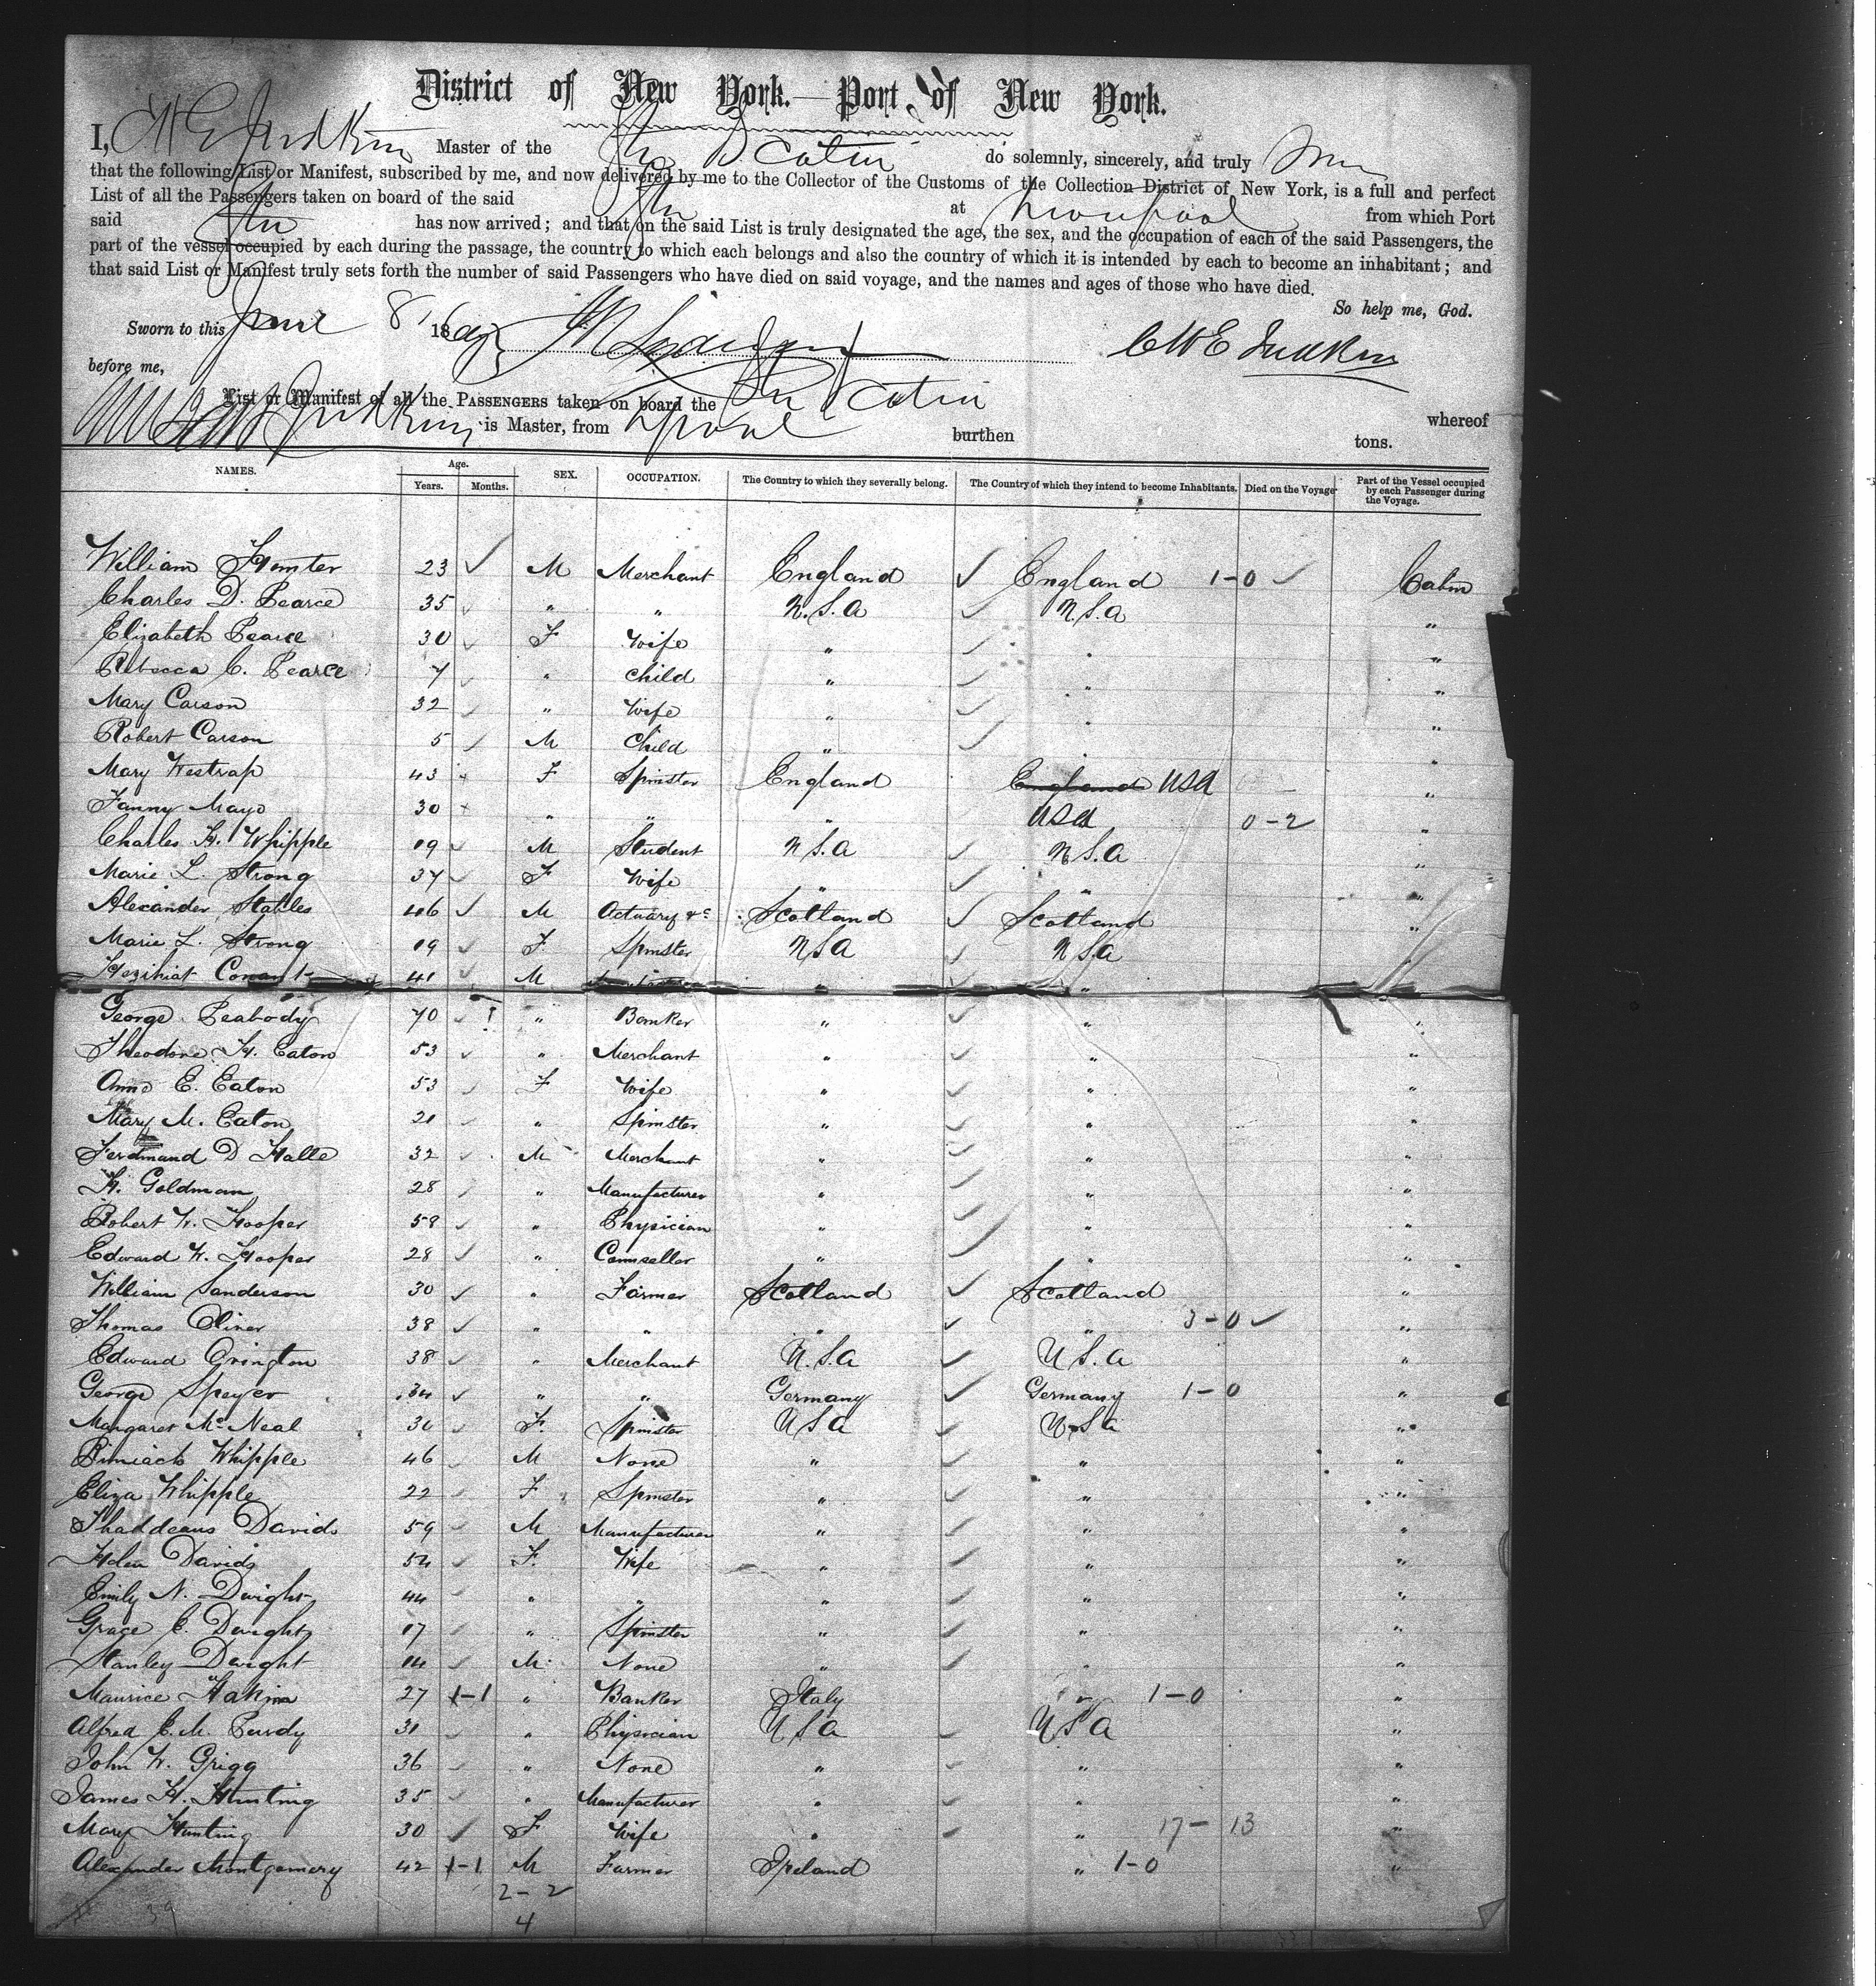 District of New York.—Port of New York.
I, C H E Judkins Master of the Str Scotia do solemnly, sincerely, and truly
that the following List or Manifest, subscribed by me, and now delivered by me to the Collector of the Customs of the Collection District of New York, is a full and perfect
List of all the Passengers taken on board of the said Str at Liverpool from which Port
said Str has now arrived; and that on the said List is truly designated the age, the sex, and the occupation of each of the said Passengers, the
part of the vessel occupied by each during the passage, the country to which each belongs and also the country of which it is intended by each to become an inhabitant; and
that said List or Manifest truly sets forth the number of said Passengers who have died on said voyage, and the names and ages of those who have died.
So help me, God.
Sworn to this June 8, 1869 C H E Judkins
before me,
List or Manifest of all the PASSENGERS taken on board the Str Scotia whereof
Judkins is Master, from Lpool burthen tons.
NAMES. Age. Years. Months. SEX. OCCUPATION. The Country to which they severally belong. The Country of which they intend to become Inhabitants. Died on the Voyage Part of the Vessel occupied by each Passenger during the Voyage.
William 23 ✓ M Merchant England ✓ England 1-0 ✓ Cabin
Charles D. Pearce 35 ✓ " " U.S.A ✓ U.S.A "
Elizabeth Pearce 30 ✓ F Wife " ✓ " "
Rebecca C. Pearce 7 ✓ " Child " ✓ " "
Mary Carson 32 ✓ " Wife " ✓ " "
Robert Carson 5 ✓ M Child " ✓ " "
Mary Westrap 43 + F Spinster England England USA "
Fanny Mayo 30 + " " " USA 0-2 "
Charles H. Whipple 19 ✓ M Student U.S.A ✓ U.S.A "
Marie L. Strong 37 ✓ F Wife " ✓ " "
Alexander Stables 46 ✓ M Actuary &c Scotland ✓ Scotland "
Marie L. Strong 19 ✓ F Spinster USA ✓ USA "
Conant 41 ✓ M " ✓ "
George Peabody 70 ✓ " Banker " ✓ " "
Theodore H. Eaton 53 ✓ " Merchant " ✓ " "
Anne E. Eaton 53 ✓ F Wife " ✓ " "
Mary M. Eaton 21 ✓ " Spinster " ✓ " "
Ferdinand D Halle 32 ✓ M Merchant " ✓ " "
H. Goldman 28 ✓ " Manufacturer " ✓ " "
Robert W. Hooper 58 ✓ " Physician " ✓ " "
Edward W. Hooper 28 ✓ " Counsellor " ✓ " "
William Sanderson 30 ✓ " Farmer Scotland ✓ Scotland "
Thomas Oliver 38 ✓ " " " ✓ " 3-0 ✓ "
Edward Ovington 38 ✓ " Merchant U.S.A ✓ U S.A "
George Speyer 34 ✓ " " Germany ✓ Germany 1-0 "
Margaret McNeal 30 ✓ F. Spinster USA ✓ USA "
Whipple 46 ✓ M None " ✓ " "
Eliza Whipple 22 ✓ F Spinster " ✓ " "
Thaddeaus Davids 59 ✓ M Manufacturer " ✓ " "
Helen Davids 54 ✓ F. Wife " ✓ " "
Emily N. Dwight 44 ✓ " " " ✓ " "
Grace E. Dwight 17 ✓ " Spinster " ✓ " "
Stanley Dwight 14 ✓ M. None " ✓ " "
Maurice Hakim 27 1-1 " Banker Italy " 1-0 "
Alfred E. M. Purdy 31 ✓ " Physician USA ✓ USA "
John W. Grigg 36 ✓ " None " ✓ " "
James H. Hunting 35 ✓ " Manufacturer " ✓ " "
Mary Hunting 30 ✓ F Wife " ✓ " 17-13 "
Alexander Montgomery 42 1-1 M Farmer Ireland " 1-0 "
2-2
39 4